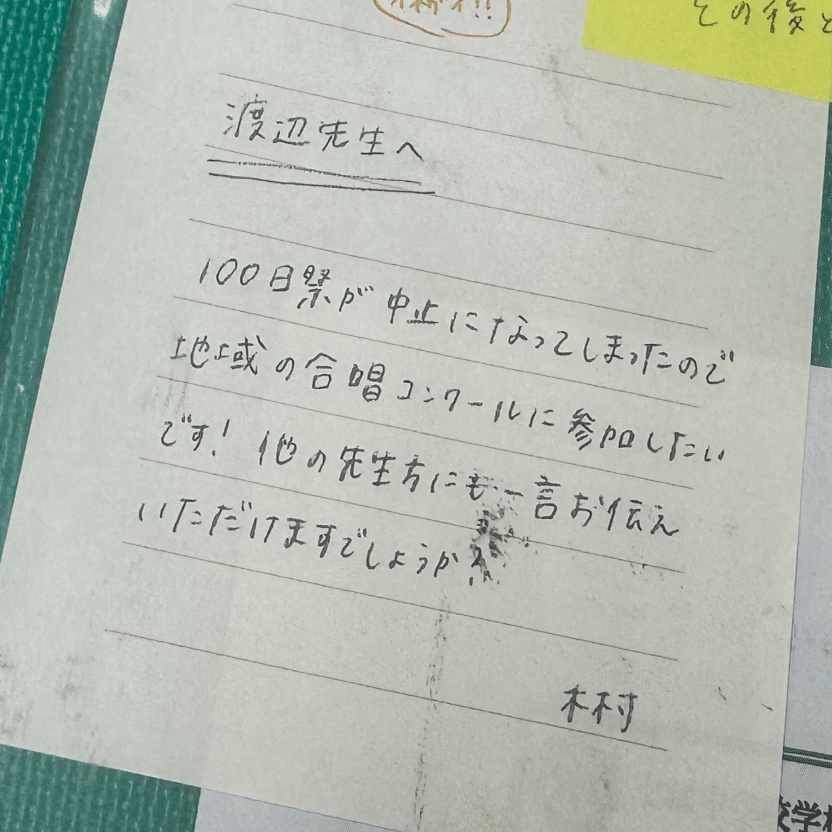 その後と
渡辺先生へ
100日祭が中止になってしまったので
地域の合唱コンクールに参加したい
です！他の先生方にも一言お伝え
いただけますでしょうか？
木村